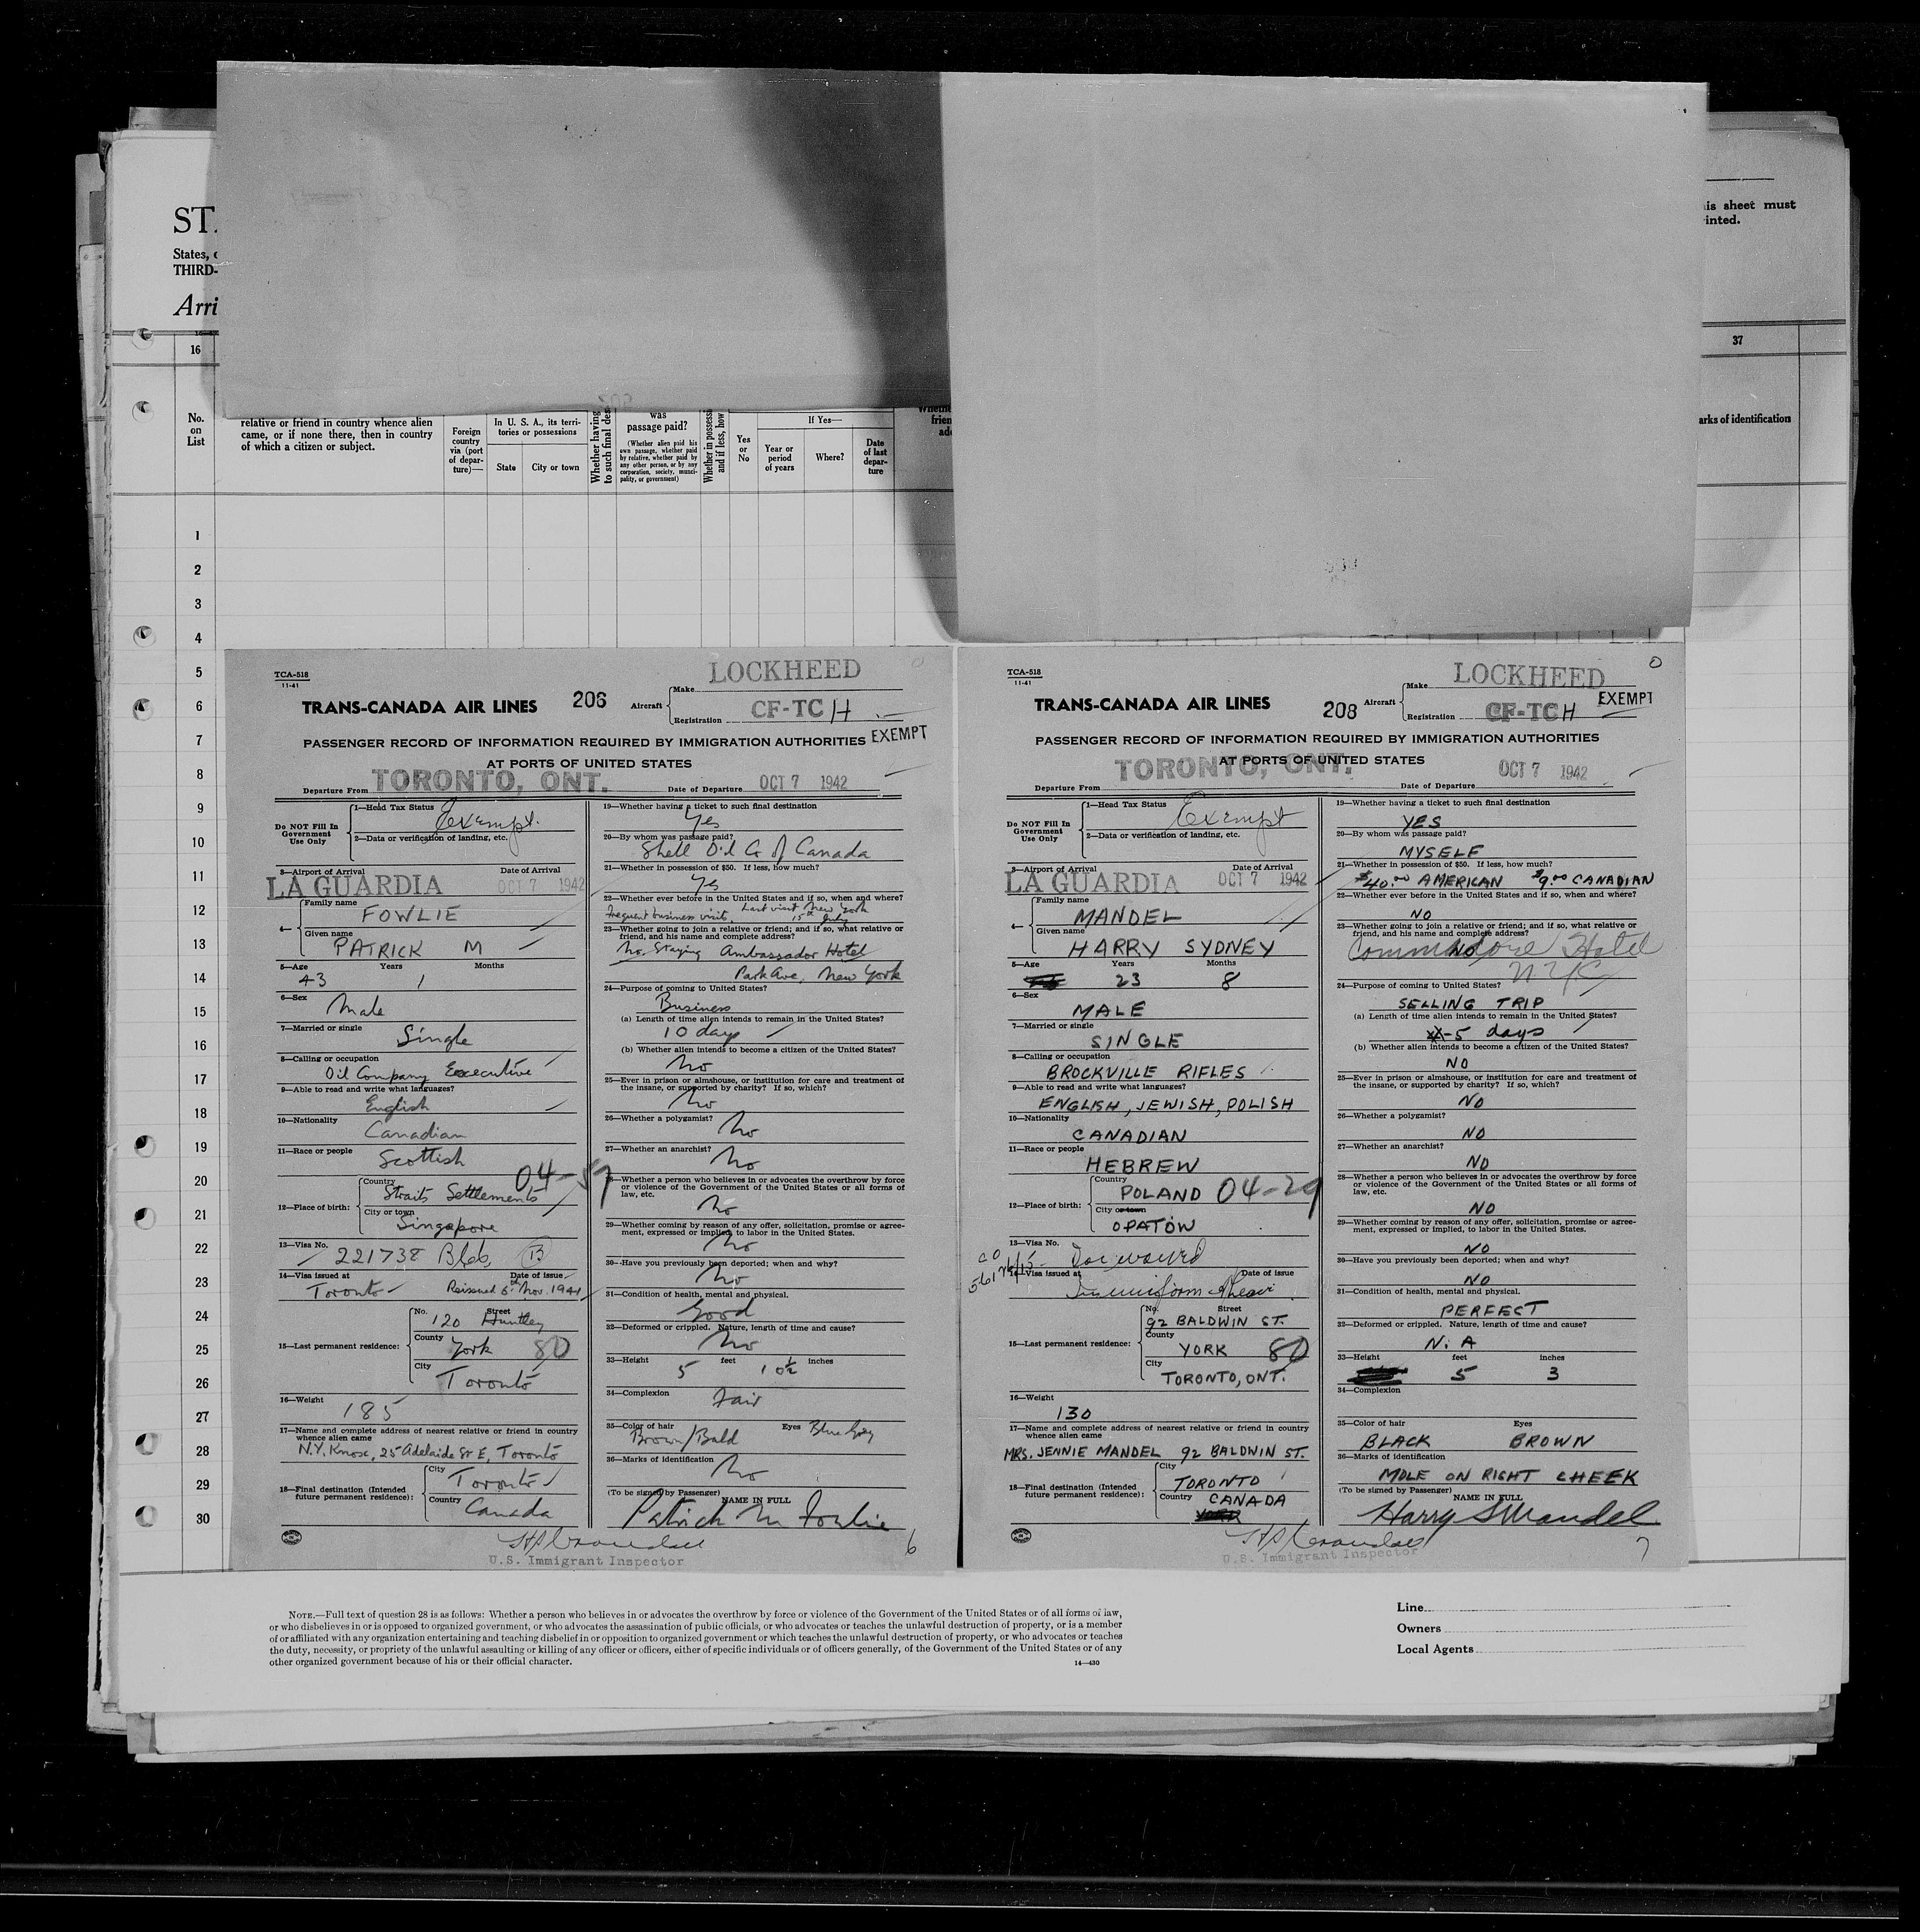 ST
States,
THIRD-
Arri
is sheet must
inted.
16
37
No.
on
List
relative or friend in country whence alien
came, or if none there, then in country
of which a citizen or subject.
Foreign
country
via (port
of depar-
ture)—
In U. S. A., its terri-
tories or possessions
State
City or town
Whether having
to such final des
was
passage paid?
(Whether alien paid his
own passage, whether paid
by relative, whether paid by
any other person, or by any
corporation, society, munici-
pality, or government)
Whether in possess
and if less, how
Yes
or
No
If Yes—
Year or
period
of years
Where?
Date
of last
depar-
ture
arks of identification
1
2
3
4
5
6
7
8
9
10
11
12
13
14
15
16
17
18
19
20
21
22
23
24
25
26
27
28
29
30
TCA-518
11-41
LOCKHEED
TRANS-CANADA AIR LINES 206 Aircraft Make
Registration CF-TCH
EXEMPT
PASSENGER RECORD OF INFORMATION REQUIRED BY IMMIGRATION AUTHORITIES
AT PORTS OF UNITED STATES
Departure From TORONTO, ONT. Date of Departure OCT 7 1942
Do NOT Fill In
Government
Use Only
1—Head Tax Status Exempt.
2—Data or verification of landing, etc.
3—Airport of Arrival Date of Arrival
LA GUARDIA OCT 7 1942
4— Family name
FOWLIE
Given name
PATRICK M
5—Age Years Months
43 1
6—Sex
Male
7—Married or single
Single
8—Calling or occupation
Oil Company Executive
9—Able to read and write what languages?
English
10—Nationality
Canadian
11—Race or people
Scottish
04-57
12—Place of birth: Country
Straits Settlements
City or town
Singapore
13—Visa No.
221738 B
14—Visa issued at Date of issue
Toronto Reissued 6th Nov. 1941
15—Last permanent residence: No. Street
120 Huntley
County
York 80
City
Toronto
16—Weight
185
17—Name and complete address of nearest relative or friend in country
whence alien came
N.Y. Knox, 25 Adelaide St E, Toronto
18—Final destination (Intended
future permanent residence): City
Toronto
Country
Canada
19—Whether having a ticket to such final destination
Yes
20—By whom was passage paid?
Shell Oil Co of Canada
21—Whether in possession of $50. If less, how much?
Yes
22—Whether ever before in the United States and if so, when and where?
frequent business visits. Last visit New York
15th July
23—Whether going to join a relative or friend; and if so, what relative or
friend, and his name and complete address?
No. Staying Ambassador Hotel
Park Ave, New York
24—Purpose of coming to United States?
Business
(a) Length of time alien intends to remain in the United States?
10 days
(b) Whether alien intends to become a citizen of the United States?
No
25—Ever in prison or almshouse, or institution for care and treatment of
the insane, or supported by charity? If so, which?
No
26—Whether a polygamist?
No
27—Whether an anarchist?
No
28—Whether a person who believes in or advocates the overthrow by force
or violence of the Government of the United States or all forms of
law, etc.
No
29—Whether coming by reason of any offer, solicitation, promise or agree-
ment, expressed or implied, to labor in the United States.
No
30—Have you previously been deported; when and why?
No
31—Condition of health, mental and physical.
Good
32—Deformed or crippled. Nature, length of time and cause?
No
33—Height feet inches
5 10½
34—Complexion
Fair
35—Color of hair Eyes
Brown/Bald Blue Grey
36—Marks of identification
No
(To be signed by Passenger) NAME IN FULL
Patrick M Fowlie
U.S. Immigrant Inspector
6
TCA-518
11-41
LOCKHEED
0
TRANS-CANADA AIR LINES 208 Aircraft Make
Registration CF-TCH
EXEMPT
PASSENGER RECORD OF INFORMATION REQUIRED BY IMMIGRATION AUTHORITIES
AT PORTS OF UNITED STATES
Departure From TORONTO, ONT. Date of Departure OCT 7 1942
Do NOT Fill In
Government
Use Only
1—Head Tax Status Exempt
2—Data or verification of landing, etc.
3—Airport of Arrival Date of Arrival
LA GUARDIA OCT 7 1942
4— Family name
MANDEL
Given name
HARRY SYDNEY
5—Age Years Months
23 8
6—Sex
MALE
7—Married or single
SINGLE
8—Calling or occupation
BROCKVILLE RIFLES
9—Able to read and write what languages?
ENGLISH, JEWISH, POLISH
10—Nationality
CANADIAN
11—Race or people
HEBREW
12—Place of birth: Country
POLAND 04-29
City or town
OPATOW
13—Visa No.
14—Visa issued at Date of issue
In uniform
15—Last permanent residence: No. Street
92 BALDWIN ST.
County
YORK 80
City
TORONTO, ONT.
16—Weight
130
17—Name and complete address of nearest relative or friend in country
whence alien came
MRS. JENNIE MANDEL 92 BALDWIN ST.
18—Final destination (Intended
future permanent residence): City
TORONTO
Country CANADA
19—Whether having a ticket to such final destination
YES
20—By whom was passage paid?
MYSELF
21—Whether in possession of $50. If less, how much?
$40.00 AMERICAN $9.00 CANADIAN
22—Whether ever before in the United States and if so, when and where?
NO
23—Whether going to join a relative or friend; and if so, what relative or
friend, and his name and complete address?
NO
Commodore Hotel
NYC
24—Purpose of coming to United States?
SELLING TRIP
(a) Length of time alien intends to remain in the United States?
5 days
(b) Whether alien intends to become a citizen of the United States?
NO
25—Ever in prison or almshouse, or institution for care and treatment of
the insane, or supported by charity? If so, which?
NO
26—Whether a polygamist?
NO
27—Whether an anarchist?
NO
28—Whether a person who believes in or advocates the overthrow by force
or violence of the Government of the United States or all forms of
law, etc.
NO
29—Whether coming by reason of any offer, solicitation, promise or agree-
ment, expressed or implied, to labor in the United States.
NO
30—Have you previously been deported; when and why?
NO
31—Condition of health, mental and physical.
PERFECT
32—Deformed or crippled. Nature, length of time and cause?
N.A
33—Height feet inches
5 3
34—Complexion
35—Color of hair Eyes
BLACK BROWN
36—Marks of identification
MOLE ON RIGHT CHEEK
(To be signed by Passenger) NAME IN FULL
Harry S Mandel
U.S. Immigrant Inspector
7
NOTE.—Full text of question 28 is as follows: Whether a person who believes in or advocates the overthrow by force or violence of the Government of the United States or of all forms of law,
or who disbelieves in or is opposed to organized government, or who advocates the assassination of public officials, or who advocates or teaches the unlawful destruction of property, or is a member
of or affiliated with any organization entertaining and teaching disbelief in or opposition to organized government or which teaches the unlawful destruction of property, or who advocates or teaches
the duty, necessity, or propriety of the unlawful assaulting or killing of any officer or officers, either of specific individuals or of officers generally, of the Government of the United States or of any
other organized government because of his or their official character.
14—430
Line
Owners
Local Agents